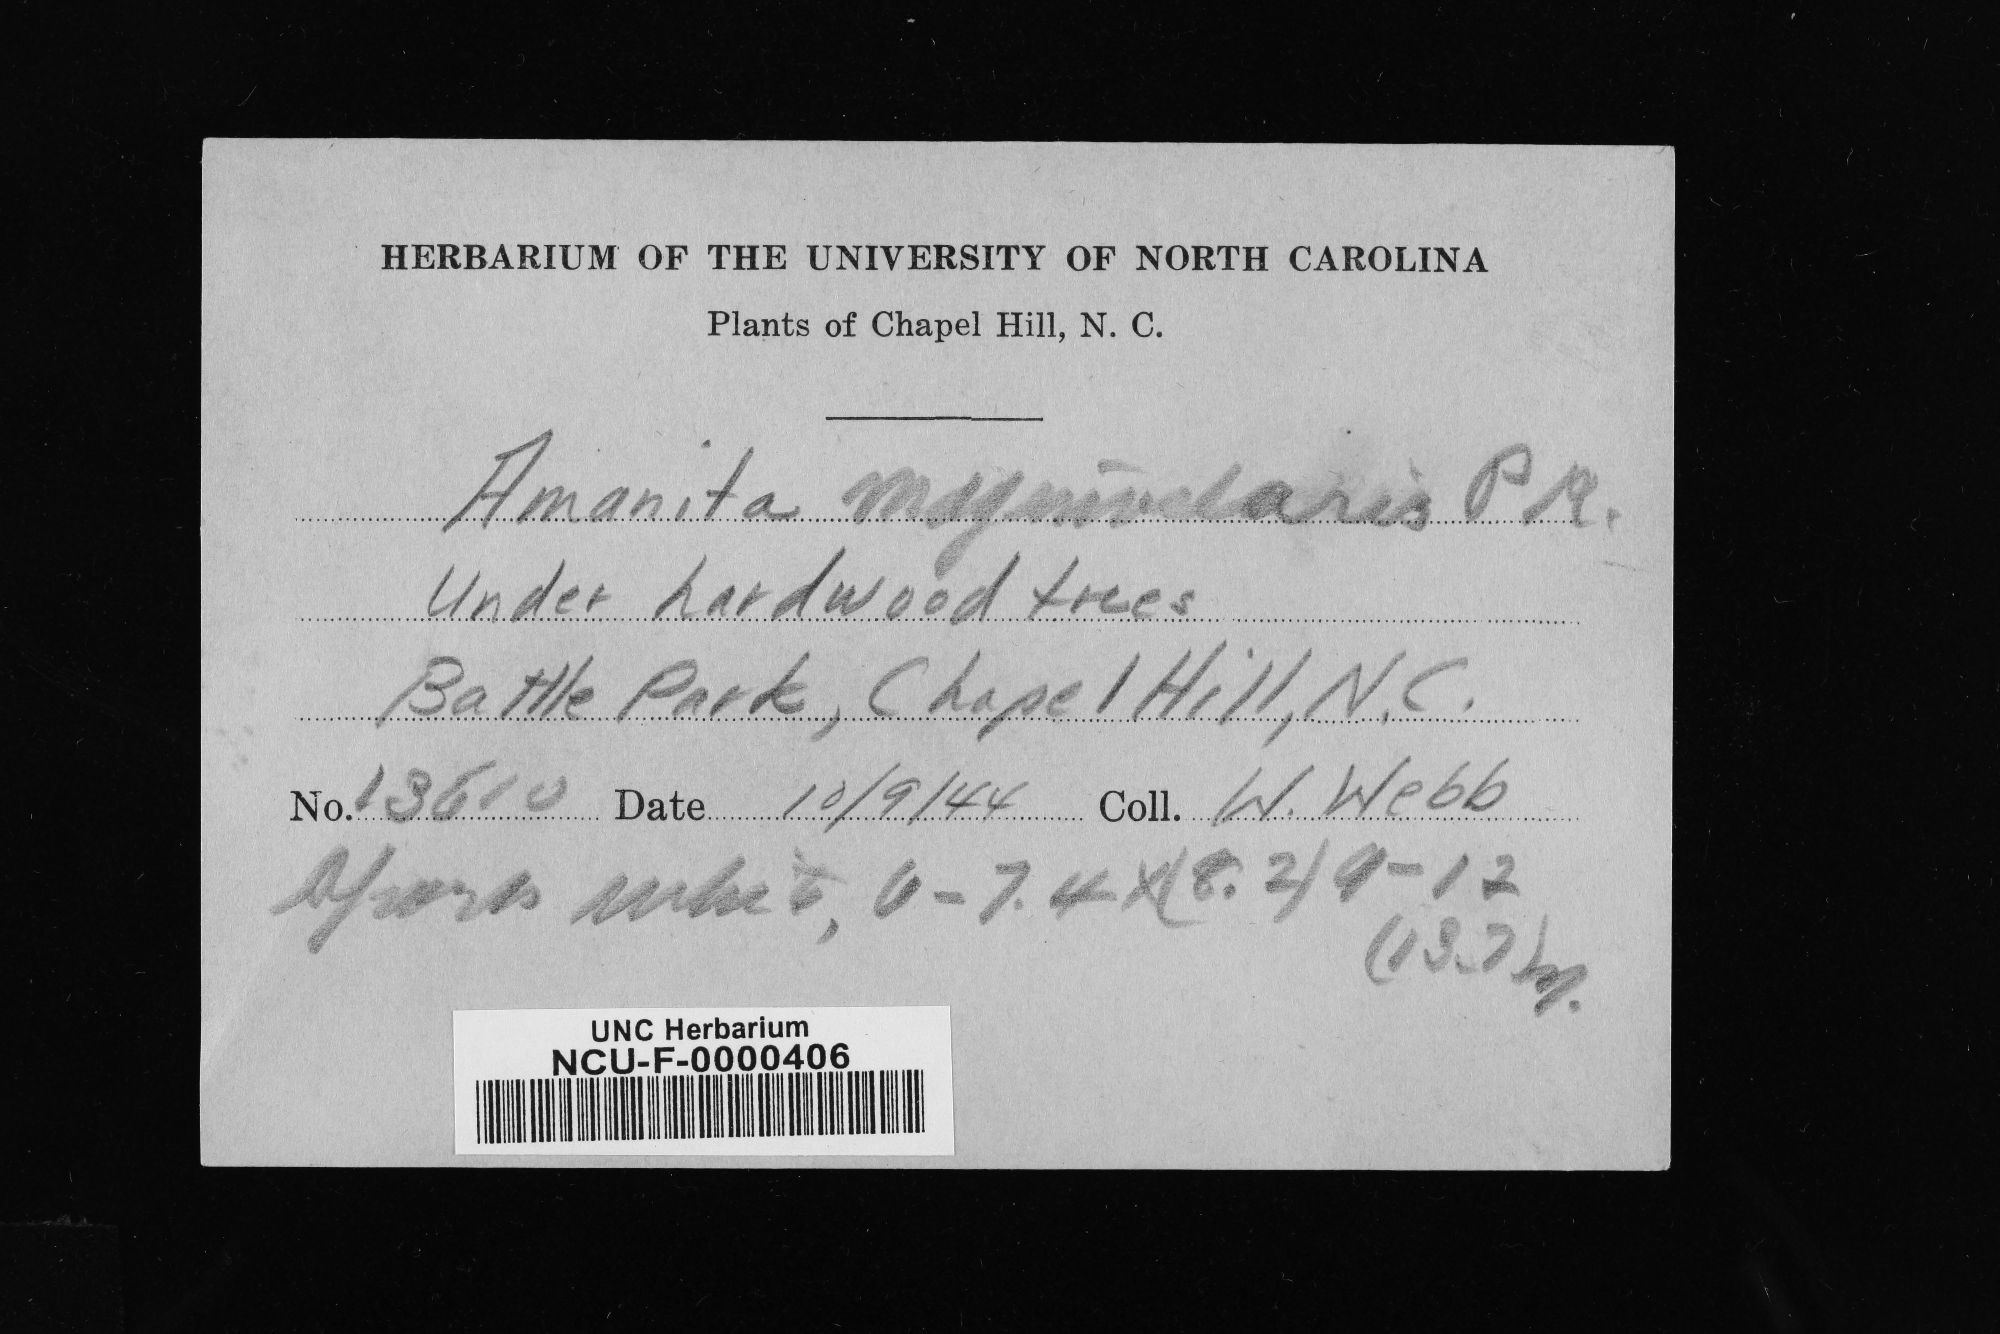 HERBARIUM OF THE UNIVERSITY OF NORTH CAROLINA
Plants of Chapel Hill, N. C.
Amanita magnivelaris Pk.
Under hardwood trees
Battle Park, Chapel Hill, N.C.
No. 13610 Date 10/9/44 Coll. W. Webb
Spores white, 6-7.4 x (8.2) 9-12
(13.7)
UNC Herbarium
NCU-F-0000406